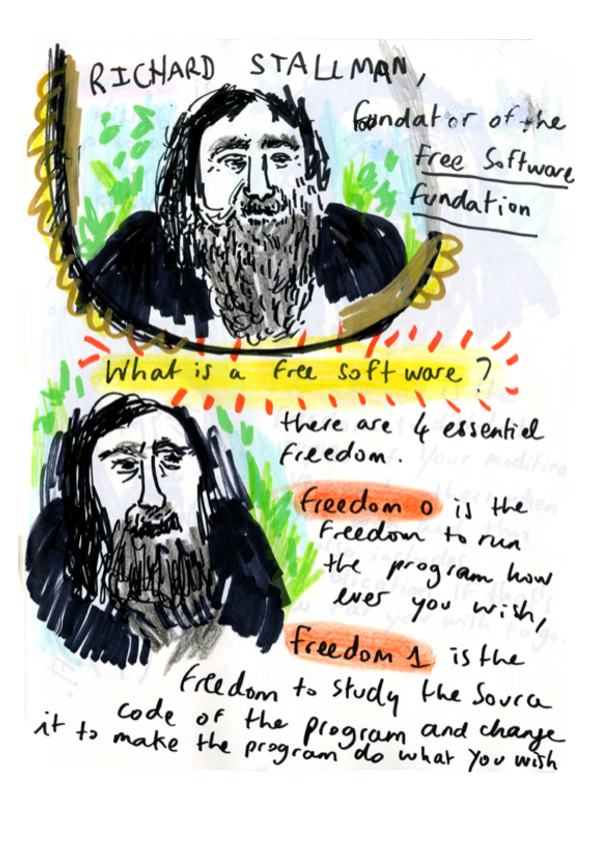 RICHARD STALLMAN,
fundator of the
Free Software
fundation
What is a free software ?
there are 4 essentiel
freedom.
freedom 0 is the
freedom to run
the program how
ever you wish,
freedom 1 is the
freedom to study the source
code of the program and change
it to make the program do what you wish